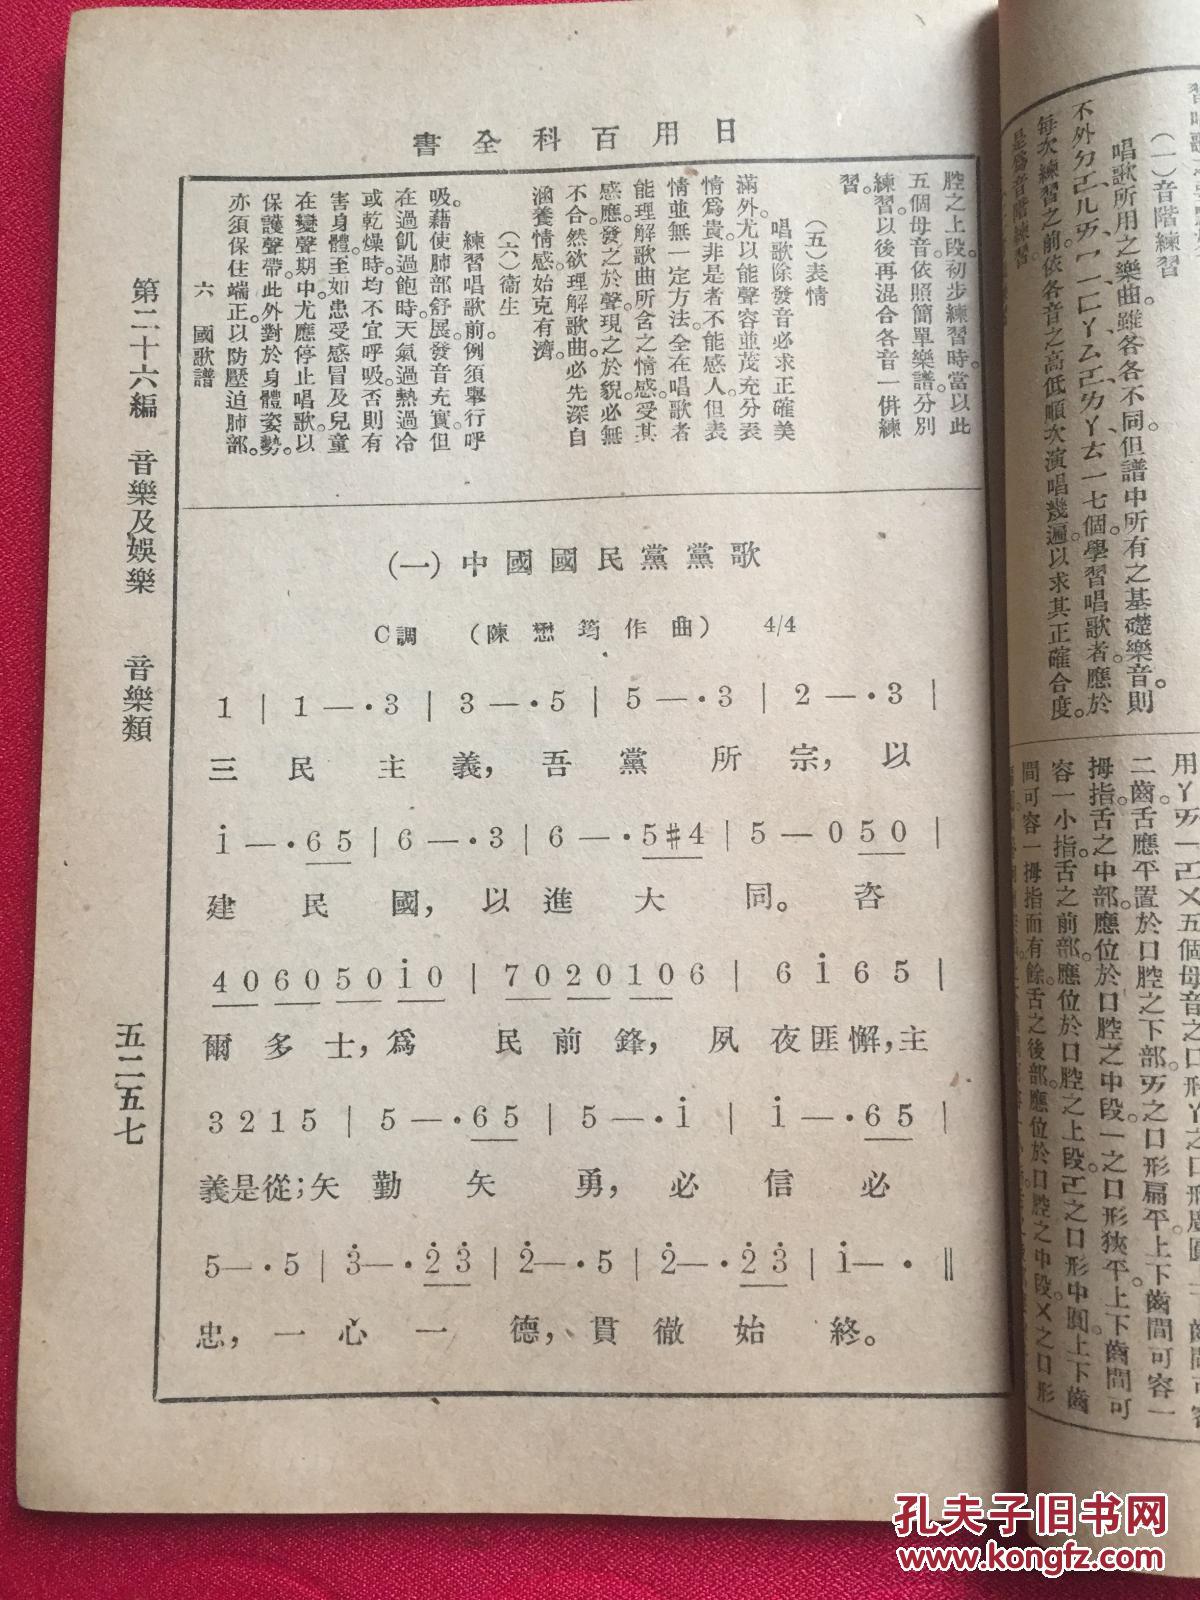 書全科百用日
腔之上段。初步練習時。當以此
五個母音。依照簡單樂譜。分別
練習。以後再混合各音一併練
習。
(五)表情
唱歌除發音必求正確美
滿外。尤以能聲容並茂。充分表
情爲貴。非是者不能感人。但表
情並無一定方法。全在唱歌者
能理解歌曲所含之情感。受其
感應。發之於聲。現之於貌。必無
不合。然欲理解歌曲。必先深自
涵養情感。始克有濟。
(六)衞生
練習唱歌前。例須舉行呼
吸。藉使肺部舒展。發音充實。但
在過飢過飽時。天氣過熱過冷
或乾燥時。均不宜呼吸。否則有
害身體。至如患受感冒及兒童
在變聲期中。尤應停止唱歌。以
保護聲帶。此外對於身體姿勢。
亦須保住端正。以防壓迫肺部。
六 國歌譜
(一)中國國民黨黨歌
C調 (陳懋筠作曲) 4/4
1 | 1 — · 3 | 3 — · 5 | 5 — · 3 | 2 — · 3 |
三民主義,吾黨所宗,以
i — · 6 5 | 6 — · 3 | 6 — · 5 #4 | 5 — 0 5 0 |
建民國,以進大同。咨
4 0 6 0 5 0 i 0 | 7 0 2 0 1 0 6 | 6 i 6 5 |
爾多士,爲民前鋒,夙夜匪懈,主
3 2 1 5 | 5 — · 6 5 | 5 — · i | i — · 6 5 |
義是從;矢勤矢勇,必信必
5 — · 5 | 3̇ — · 2̇ 3̇ | 2̇ — · 5 | 2̇ — · 2̇ 3̇ | i — · ‖
忠,一心一德,貫徹始終。
第二十六編 音樂及娛樂 音樂類
五二五七
(一)音階練習
唱歌所用之樂曲。雖各各不同。但譜中所有之基礎樂音。則
不外ㄉㄛ、ㄦㄞ、ㄇㄧ、ㄈㄚ、ㄙㄛ、ㄌㄚ、ㄊㄧ七個。學習唱歌者。應於
每次練習之前。依各音之高低順次演唱幾遍。以求其正確合度。
是爲音階練習。
用ㄚㄞㄧㄛㄨ五個母音之口形。ㄚ之口形
二齒。舌應平置於口腔之下部。ㄞ之口形扁平。上下齒間可容一
拇指。舌之中部。應位於口腔之中段。ㄧ之口形狹平。上下齒間可
容一小指。舌之前部。應位於口腔之上段。ㄛ之口形中圓。上下齒
間可容一拇指而有餘。舌之後部。應位於口腔之中段。ㄨ之口形
孔夫子旧书网
www.kongfz.com